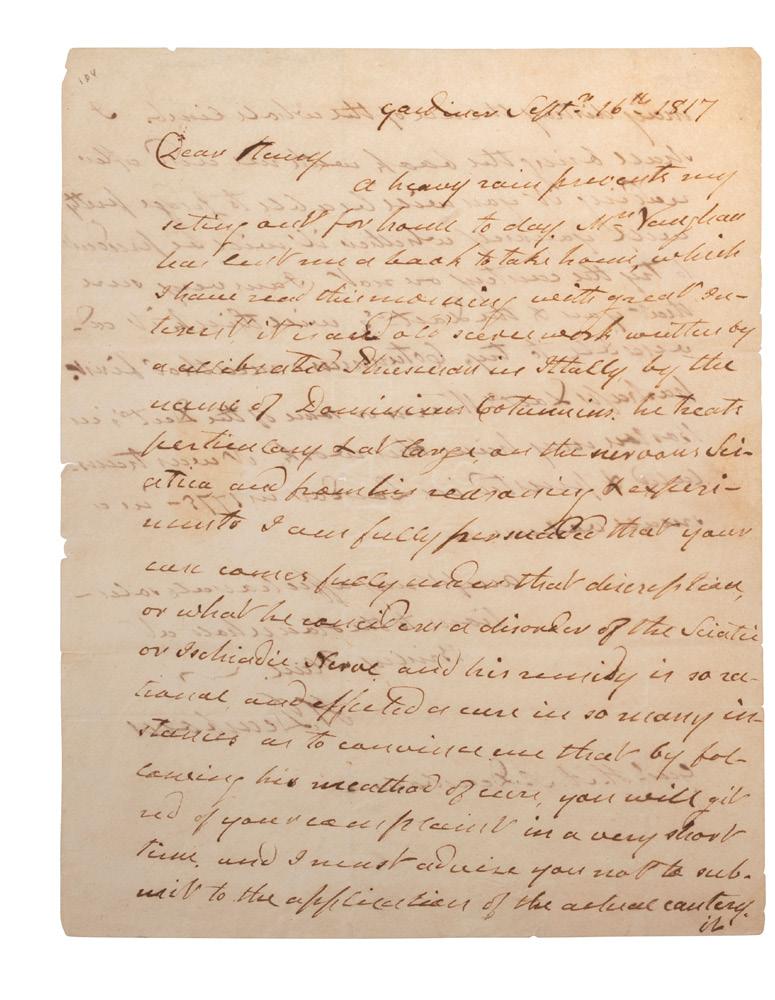 184
Gardiner Septr. 16th 1817
Dear Henry
a heavy rain prevents my
seting out for home to day Mr. Vaughan
has lent me a book to take home, which
I have read this morning with great In-
terest it is an old scerce work written by
a celibrated Phisician in Itally by the
name of Dominicus Cotunnius. he treats
perticulary & at large, on the nervous Sci-
atica and from his reasoning & experi-
ments I am fully persuaded that your
case comes fully under that discreption,
or what he considers a disorder of the Sciatic
or Ischiadic Nerve and his remidy is so ra-
tional, and effected a cure in so many in-
stances as to convince me that by fol-
lowing his meathod of cure, you will git
rid of your complaint in a very short
time, and I must advise you not to sub-
mit to the application of the actual cautery.
it